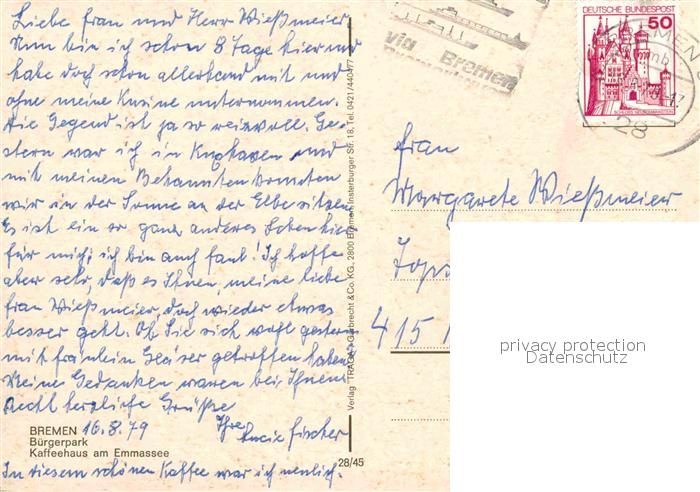 Liebe Frau und Herr Wießmeier,
Nun bin ich schon 8 Tage hier und
habe doch schon allerhand mit und
ohne meine Kusine unternommen.
Die Gegend ist ja so reizvoll. Ge-
stern war ich in Kuxhaven und
mit meinen Bekannten konnten
wir in der Sonne an der Elbe sitzen
Es ist ein so ganz anderes Leben hier
für mich; ich bin auch faul! Ich hoffe
aber sehr, daß es Ihnen, meine liebe
Frau Wießmeier, doch wieder etwas
besser geht. Ob Sie sich wohl gestern
mit Fräulein Gläser getroffen haben
Meine Gedanken waren bei Ihnen
Recht herzliche Grüße
Ihre
Lucie Fischer
16.8.79
BREMEN
Bürgerpark
Kaffeehaus am Emmassee
In diesem schönen Kaffee war ich neulich.
28/45
Verlag "TRAGA" Garbrecht & Co. KG., 2800 Bremen, Insterburger Str. 18, Tel. 0421/440477
via Bremen
DEUTSCHE BUNDESPOST
50
SCHLOSS NEUSCHWANSTEIN
BREMEN
28
Frau
Margarete Wießmeier
415
privacy protection
Datenschutz